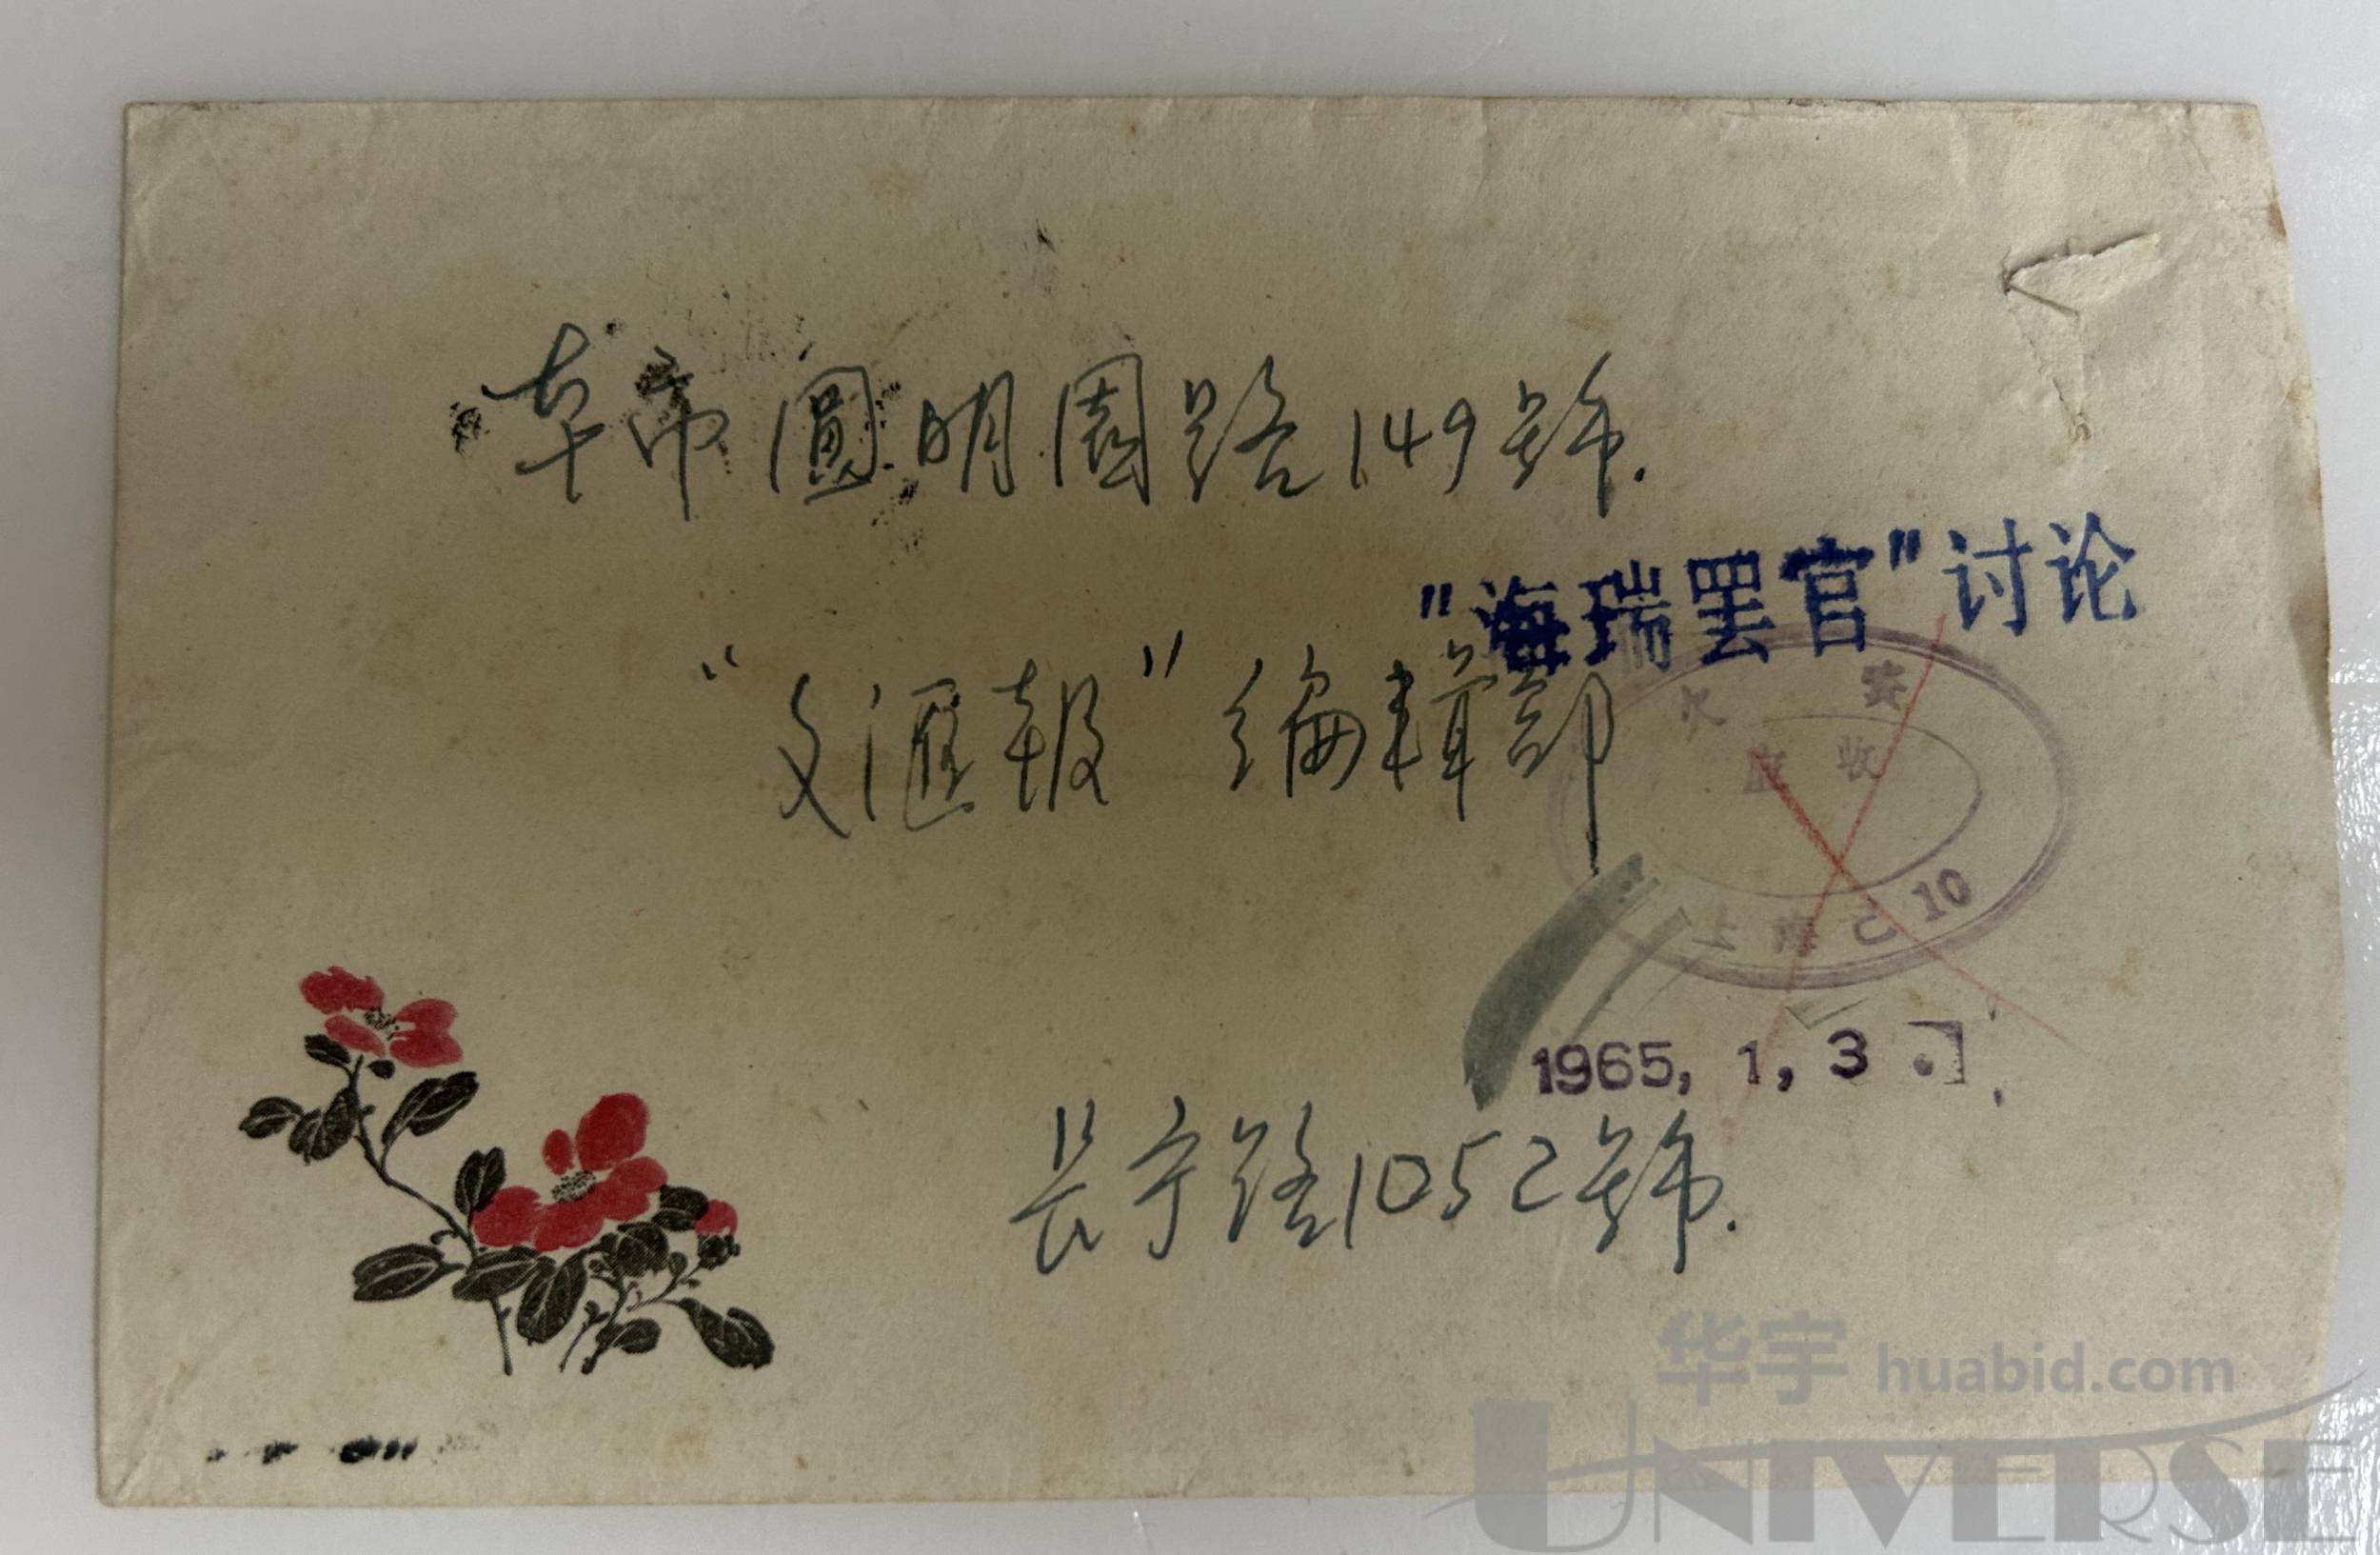 本市圓明園路149號.
"海瑞罢官"讨论
"文滙報"編輯部
欠资
应收
上海己10
1965, 1, 3
長宁路1052號.
华宇 huabid.com
UNIVERSE